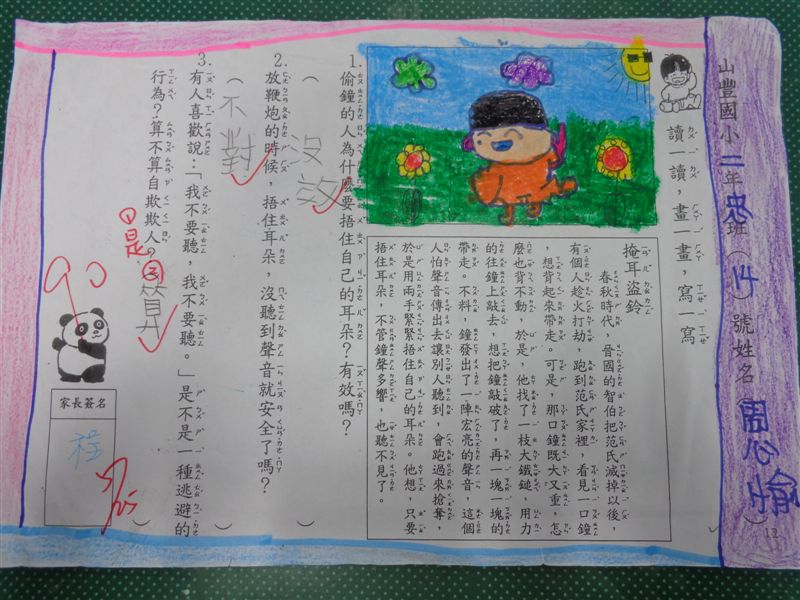 山豐國小二年忠班(14)號姓名周心愉
讀一讀,畫一畫,寫一寫
掩耳盜鈴
春秋時代,晉國的智伯把范氏滅掉以後,
有個人趁火打劫,跑到范氏家裡,看見一口鐘
,想背起來帶走。可是,那口鐘既大又重,怎
麼也背不動,於是,他找了一枝大鐵鎚,用力
的往鐘上敲去,想把鐘敲破了,再一塊一塊的
帶走。不料,鐘發出了一陣宏亮的聲音,這個
人怕聲音傳出去讓別人聽到,會跑過來搶奪,
於是用兩手緊緊捂住自己的耳朵。他想,只要
捂住耳朵,不管鐘聲多響,也聽不見了。
1.偷鐘的人為什麼要捂住自己的耳朵?有效嗎?
(沒效)
2.放鞭炮的時候,捂住耳朵,沒聽到聲音就安全了嗎?
(不對)
3.有人喜歡說:「我不要聽,我不要聽。」是不是一種逃避的
行為?算不算自欺欺人?
①是②算
90
家長簽名
程
12